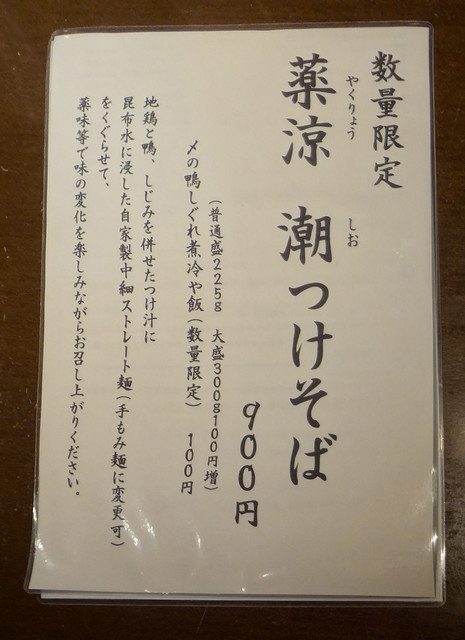 数量限定
やくりょう　しお
薬涼　潮つけそば
900円
(普通盛225g　大盛300g100円増)
〆の鴨しぐれ煮冷や飯(数量限定)　100円
地鶏と鴨、しじみを併せたつけ汁に
昆布水に浸した自家製中細ストレート麺(手もみ麺に変更可)
をくぐらせて、
薬味等で味の変化を楽しみながらお召し上がりください。